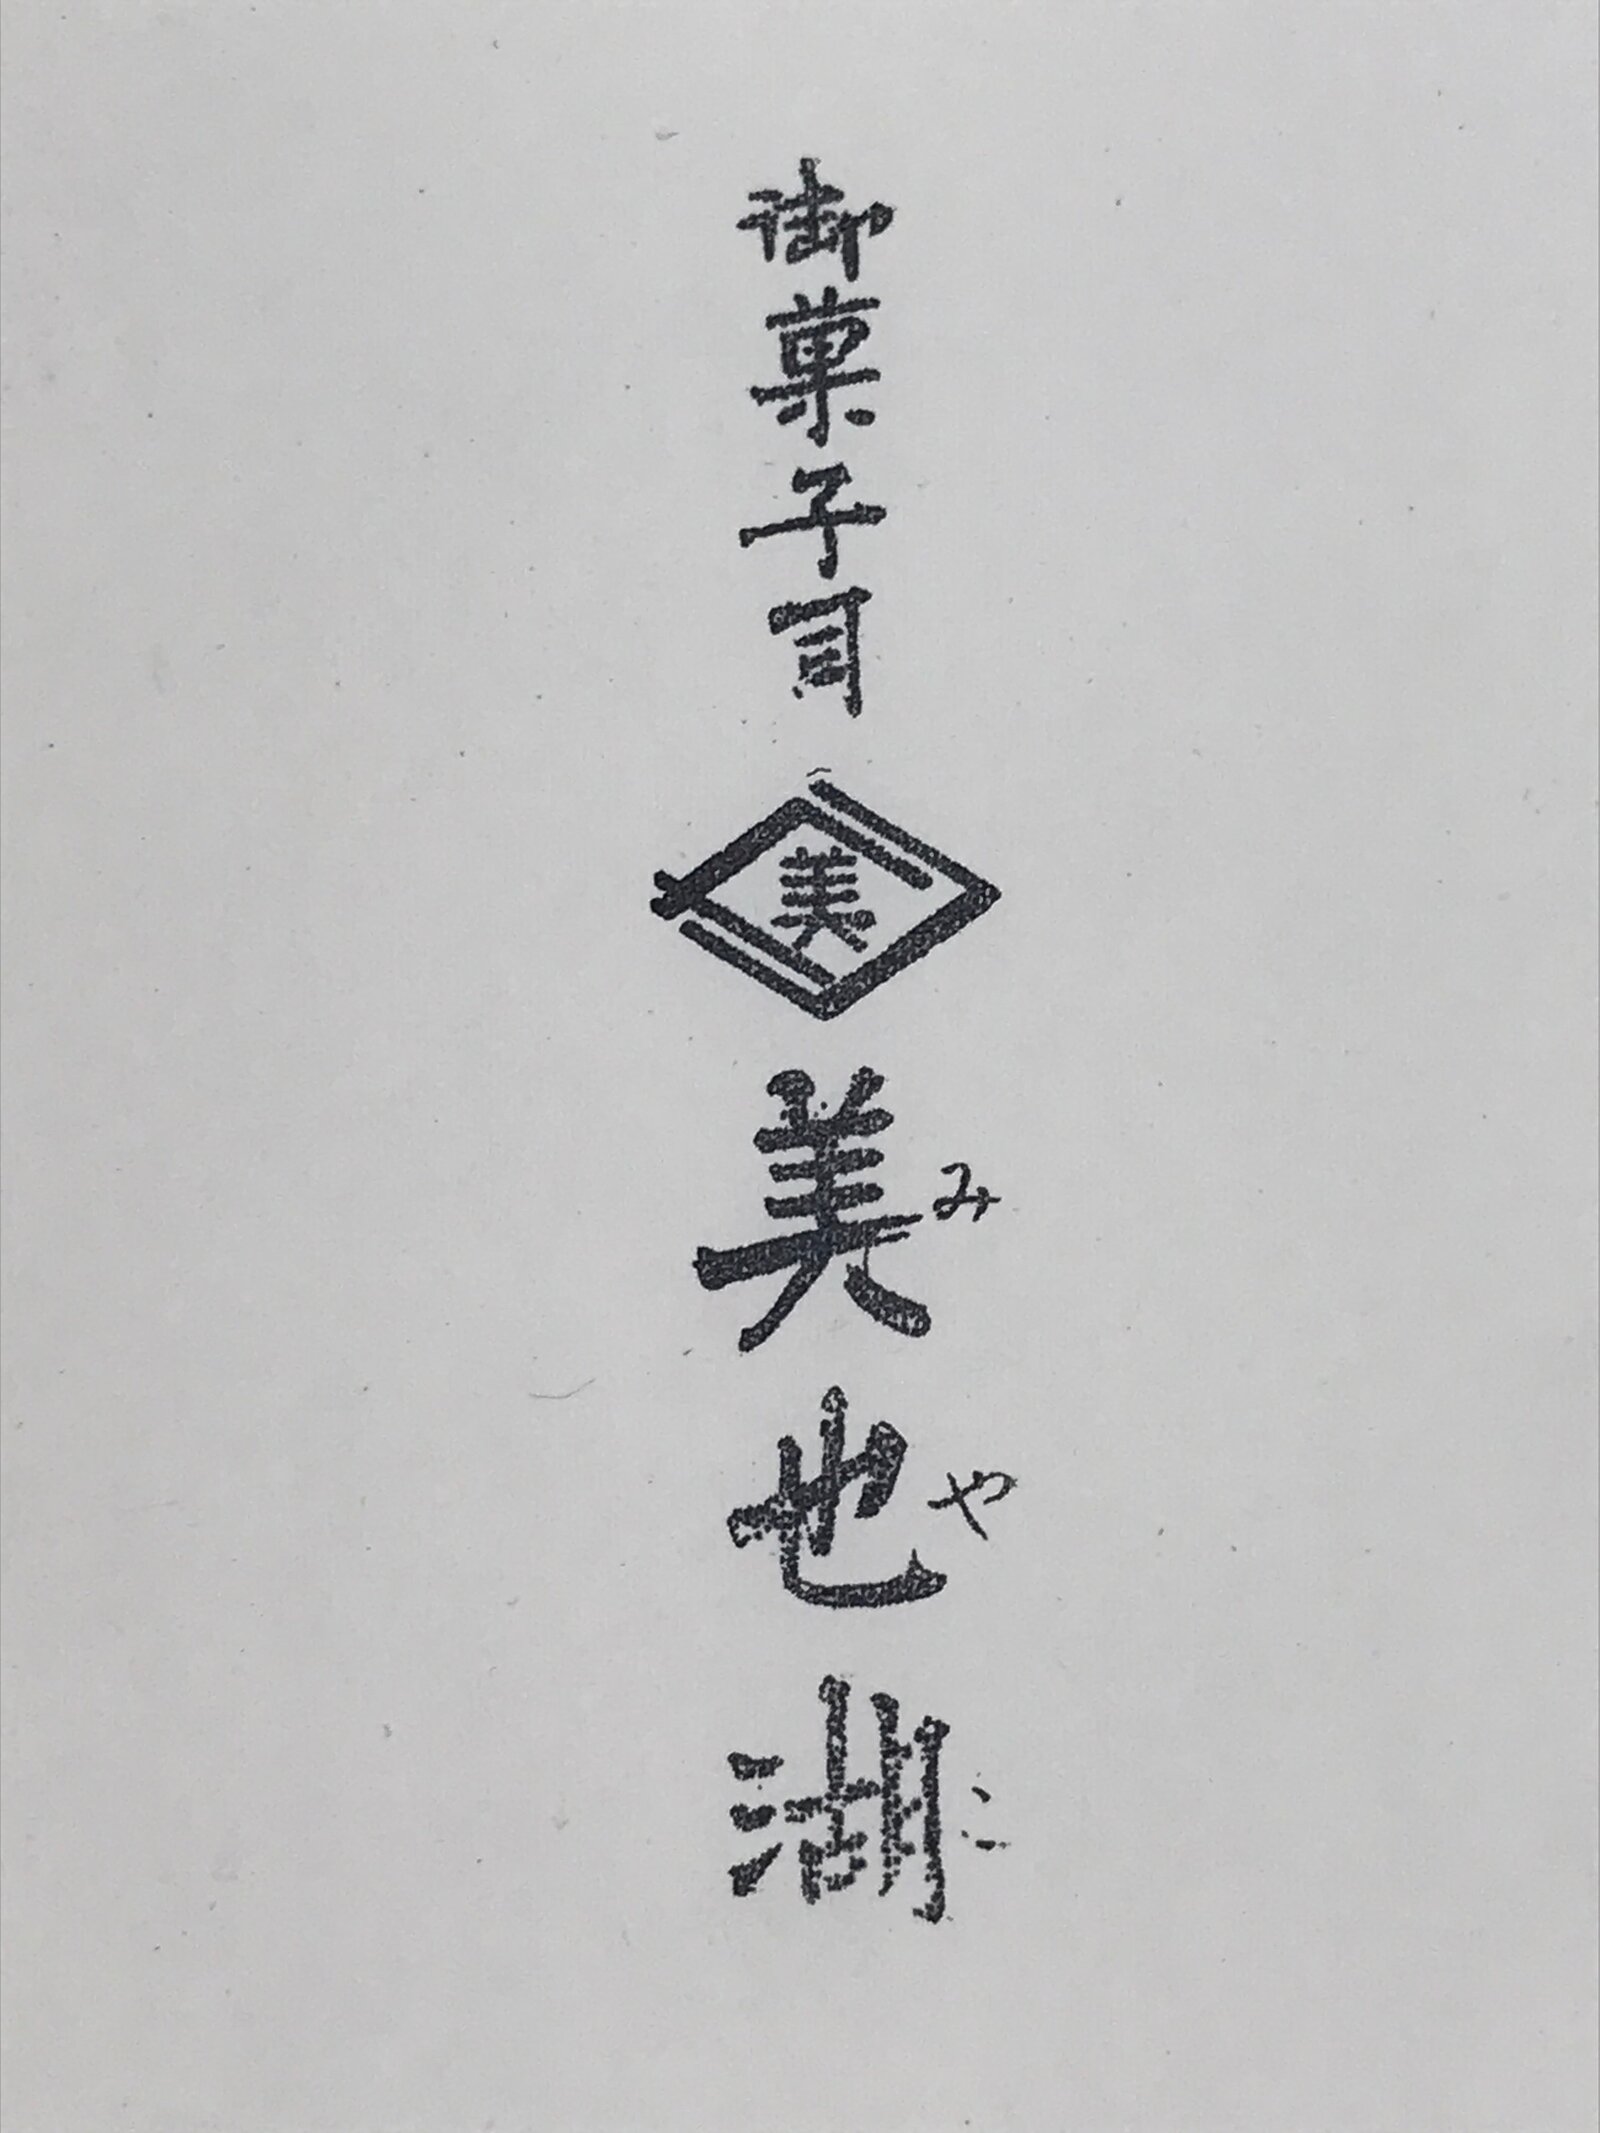 御菓子司
美
美也湖
みやこ